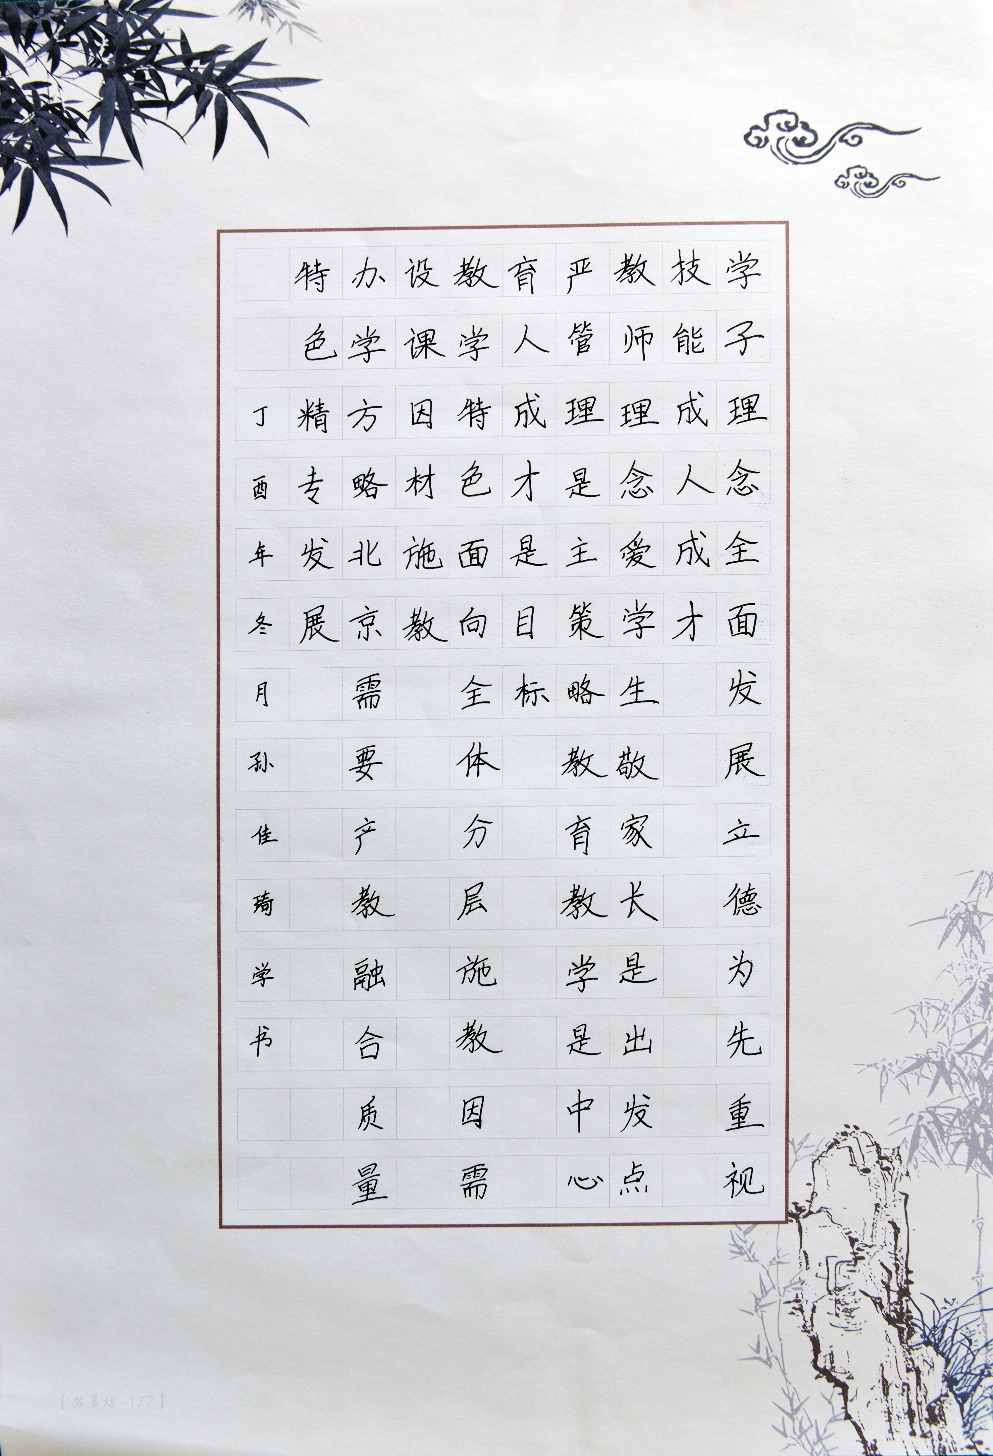 学子理念全面发展立德为先重视
技能成人成才
教师理念爱学生敬家长是出发点
严管理是主策略教育教学是中心
育人成才是目标
教学特色面向全体分层施教因需
设课因材施教
办学方略北京需要产教融合质量
特色精专发展
丁酉年冬月孙佳琦学书